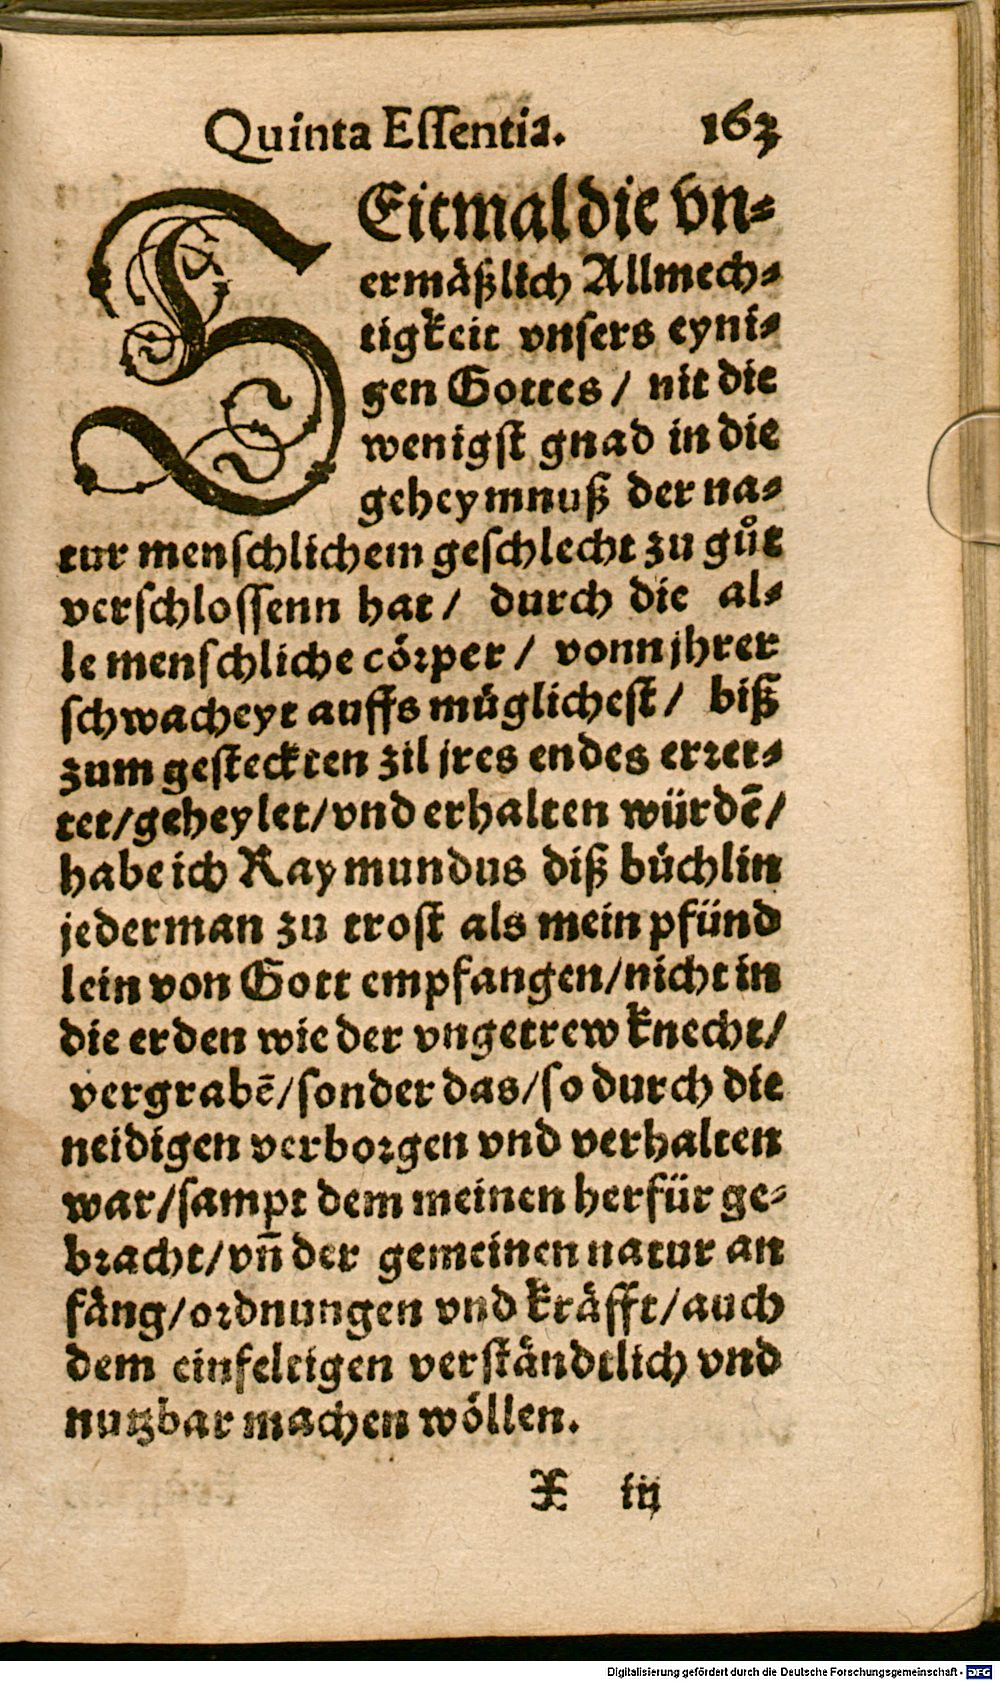 Quinta Eſſentia. 163
SEitmal die vn⸗
ermäßlich Allmech⸗
tigkeit vnſers eyni⸗
gen Gottes / nit die
wenigſt gnad in die
geheymnuß der na⸗
tur menſchlichem geſchlecht zu gůt
verſchloſſenn hat / durch die al⸗
le menſchliche cörper / vonn jhrer
ſchwacheyt auffs müglicheſt / biß
zum geſteckten zil jres endes erꝛet⸗
tet/geheylet/vnd erhalten würdẽ/
habe ich Raymundus diß büchlin
jederman zu troſt als mein pfünd
lein von Gott empfangen/nicht in
die erden wie der vngetrew knecht/
vergrabẽ/ſonder das/ſo durch die
neidigen verboꝛgen vnd verhalten
war/ſampt dem meinen herfür ge⸗
bꝛacht/vn̄ der gemeinen natur an
fäng/oꝛdnungen vnd kräfft/auch
dem einfeltigen verſtändtlich vnd
nutzbar machen wöllen.
X iij
Digitalisierung gefördert durch die Deutsche Forschungsgemeinschaft - DFG